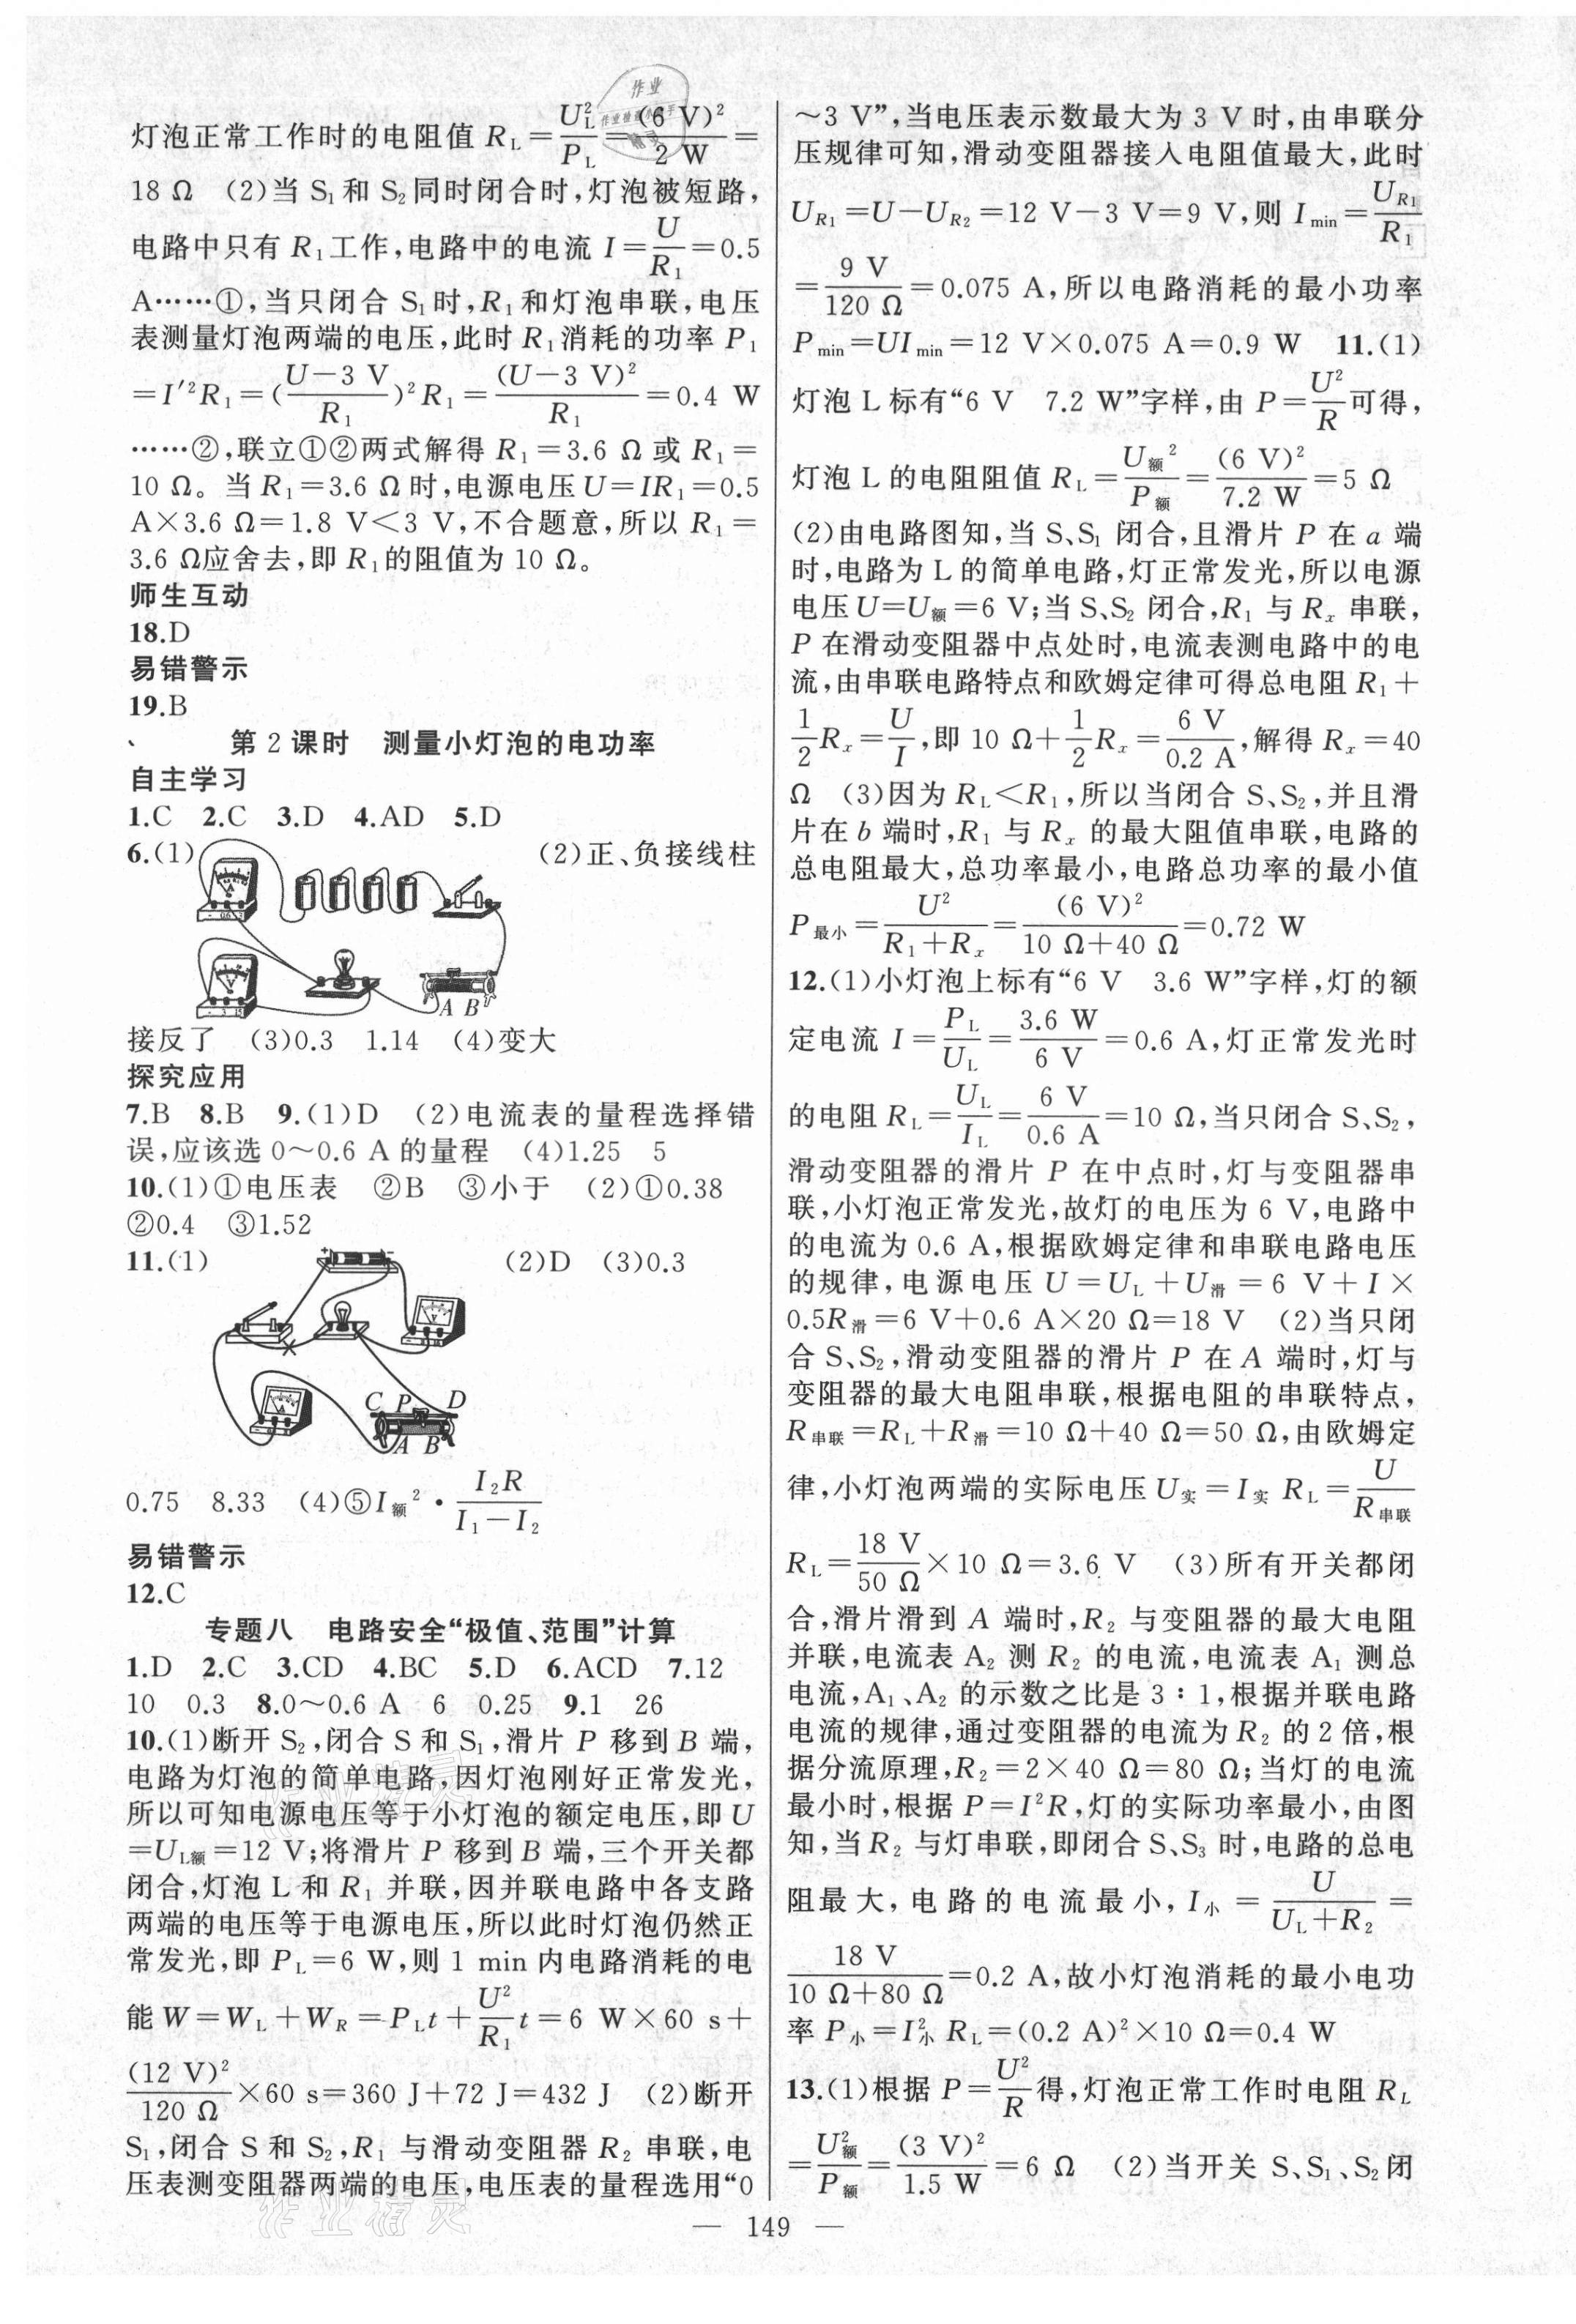 灯泡正常工作时的电阻值 R_L=U_L²/P_L=(6 V)²/2 W=
18 Ω (2)当 S₁和 S₂同时闭合时,灯泡被短路,
电路中只有 R₁工作,电路中的电流 I=U/R₁=0.5
A……①,当只闭合 S₁时,R₁和灯泡串联,电压
表测量灯泡两端的电压,此时 R₁消耗的功率 P₁
=I′²R₁=((U-3 V)/R₁)²R₁=(U-3 V)²/R₁=0.4 W
……②,联立①②两式解得 R₁=3.6 Ω 或 R₁=
10 Ω。当 R₁=3.6 Ω 时,电源电压U=IR₁=0.5
A×3.6 Ω=1.8 V<3 V,不合题意,所以 R₁=
3.6 Ω应舍去,即 R₁的阻值为 10 Ω。
师生互动
18.D
易错警示
19.B
第 2 课时 测量小灯泡的电功率
自主学习
1.C 2.C 3.D 4.AD 5.D
6.(1) (2)正、负接线柱
A B
接反了 (3)0.3 1.14 (4)变大
探究应用
7.B 8.B 9.(1)D (2)电流表的量程选择错
误,应该选 0~0.6 A 的量程 (4)1.25 5
10.(1)①电压表 ②B ③小于 (2)①0.38
②0.4 ③1.52
11.(1) (2)D (3)0.3
C P D
A B
0.75 8.33 (4)⑤I额²·I₂R/(I₁-I₂)
易错警示
12.C
专题八 电路安全“极值、范围”计算
1.D 2.C 3.CD 4.BC 5.D 6.ACD 7.12
10 0.3 8.0~0.6 A 6 0.25 9.1 26
10.(1)断开 S₂,闭合 S 和 S₁,滑片 P 移到 B 端,
电路为灯泡的简单电路,因灯泡刚好正常发光,
所以可知电源电压等于小灯泡的额定电压,即 U
=U_L额=12 V;将滑片 P 移到 B 端,三个开关都
闭合,灯泡 L 和 R₁ 并联,因并联电路中各支路
两端的电压等于电源电压,所以此时灯泡仍然正
常发光,即 P_L=6 W,则 1 min 内电路消耗的电
能 W=W_L+W_R=P_Lt+U²/R₁t=6 W×60 s+
(12 V)²/120 Ω×60 s=360 J+72 J=432 J (2)断开
S₁,闭合 S 和 S₂,R₁ 与滑动变阻器 R₂ 串联,电
压表测变阻器两端的电压,电压表的量程选用“0
~3 V”,当电压表示数最大为 3 V 时,由串联分
压规律可知,滑动变阻器接入电阻值最大,此时
U_R₁=U-U_R₂=12 V-3 V=9 V,则 I_min=U_R₁/R₁
=9 V/120 Ω=0.075 A,所以电路消耗的最小功率
P_min=UI_min=12 V×0.075 A=0.9 W 11.(1)
灯泡 L 标有“6 V 7.2 W”字样,由 P=U²/R可得,
灯泡 L 的电阻阻值 R_L=U额²/P额=(6 V)²/7.2 W=5 Ω
(2)由电路图知,当 S、S₁ 闭合,且滑片 P 在 a 端
时,电路为 L 的简单电路,灯正常发光,所以电源
电压U=U额=6 V;当 S、S₂ 闭合,R₁ 与 Rₓ 串联,
P 在滑动变阻器中点处时,电流表测电路中的电
流,由串联电路特点和欧姆定律可得总电阻 R₁+
1/2Rₓ=U/I,即 10 Ω+1/2Rₓ=6 V/0.2 A,解得 Rₓ=40
Ω (3)因为 R_L<R₁,所以当闭合 S、S₂,并且滑
片在 b 端时,R₁ 与 Rₓ 的最大阻值串联,电路的
总电阻最大,总功率最小,电路总功率的最小值
P最小=U²/(R₁+Rₓ)=(6 V)²/(10 Ω+40 Ω)=0.72 W
12.(1)小灯泡上标有“6 V 3.6 W”字样,灯的额
定电流 I=P_L/U_L=3.6 W/6 V=0.6 A,灯正常发光时
的电阻 R_L=U_L/I_L=6 V/0.6 A=10 Ω,当只闭合 S、S₂,
滑动变阻器的滑片 P 在中点时,灯与变阻器串
联,小灯泡正常发光,故灯的电压为 6 V,电路中
的电流为 0.6 A,根据欧姆定律和串联电路电压
的规律,电源电压 U=U_L+U滑=6 V+I×
0.5R滑=6 V+0.6 A×20 Ω=18 V (2)当只闭
合 S、S₂,滑动变阻器的滑片 P 在 A 端时,灯与
变阻器的最大电阻串联,根据电阻的串联特点,
R串联=R_L+R滑=10 Ω+40 Ω=50 Ω,由欧姆定
律,小灯泡两端的实际电压 U实=I实 R_L=U/R串联
R_L=18 V/50 Ω×10 Ω=3.6 V (3)所有开关都闭
合,滑片滑到 A 端时,R₂ 与变阻器的最大电阻
并联,电流表 A₂ 测 R₂ 的电流,电流表 A₁ 测总
电流,A₁、A₂ 的示数之比是 3∶1,根据并联电路
电流的规律,通过变阻器的电流为 R₂ 的 2 倍,根
据分流原理,R₂=2×40 Ω=80 Ω;当灯的电流
最小时,根据 P=I²R,灯的实际功率最小,由图
知,当 R₂ 与灯串联,即闭合 S、S₃ 时,电路的总电
阻最大,电路的电流最小,I小=U/(U_L+R₂)=
18 V/(10 Ω+80 Ω)=0.2 A,故小灯泡消耗的最小电功
率 P小=I小² R_L=(0.2 A)²×10 Ω=0.4 W
13.(1)根据 P=U²/R得,灯泡正常工作时电阻 R_L
=U额²/P额=(3 V)²/1.5 W=6 Ω (2)当开关 S、S₁、S₂闭
— 149 —
作业精灵